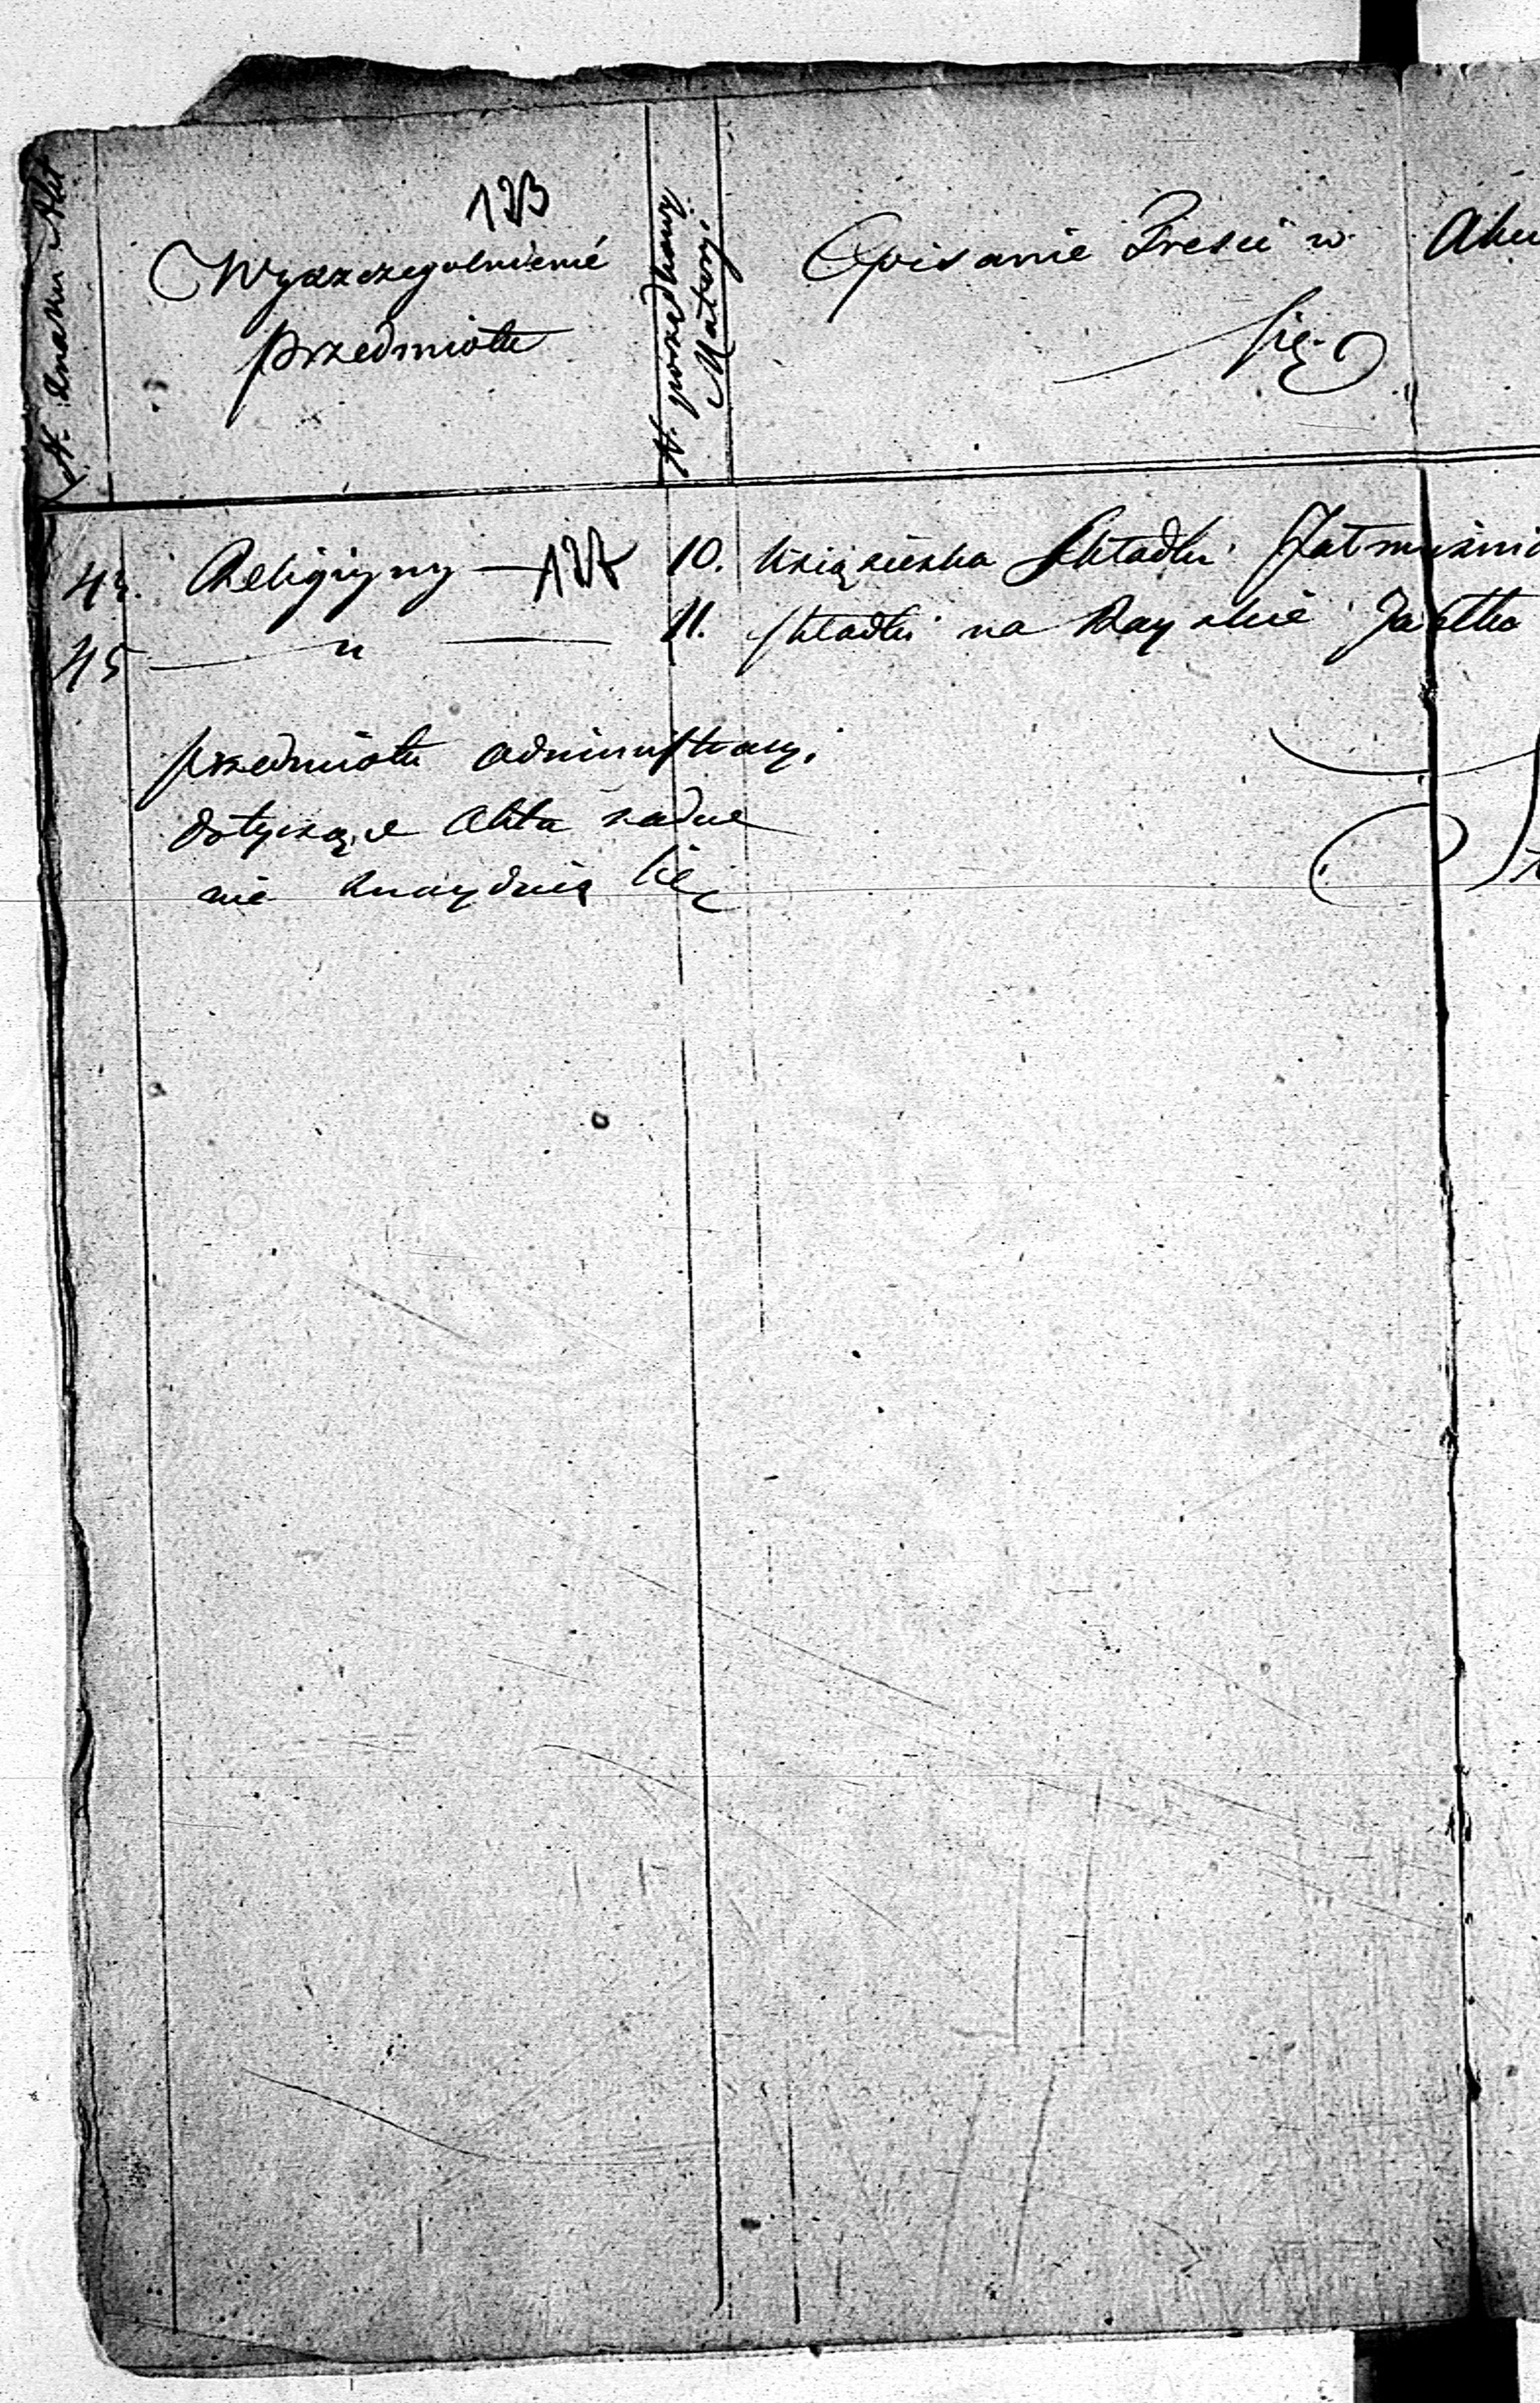 123
N. znaku Akt
Wyszczegolnienie
przedmiotu
N. porzadkowy
Materyi
Opisanie Tresci w
się
Religiyny — 127 10. Książeczka Składki Jałmużni
45 — " — 11. składki na Rayskie Jabłko
przedmiotu administracyi
dotyczące Akta żadne
nie znayduią się